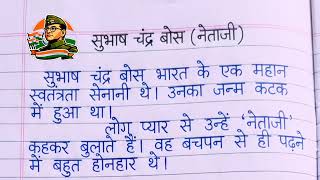 सुभाष चंद्र बोस (नेताजी)
सुभाष चंद्र बोस भारत के एक महान
स्वतंत्रता सेनानी थे। उनका जन्म कटक
में हुआ था।
लोग प्यार से उन्हें ‘नेताजी’
कहकर बुलाते हैं। वह बचपन से ही पढ़ने
में बहुत होनहार थे।